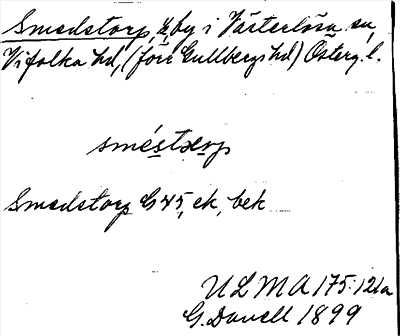 Smedstorp, by i Västerlösa sn,
Vifolka hd, (förr Gullbergs hd) Österg. l.
sméstorp
Smedstorp G 45, ek, bek
ULMA 175:121a
G. Danell 1899